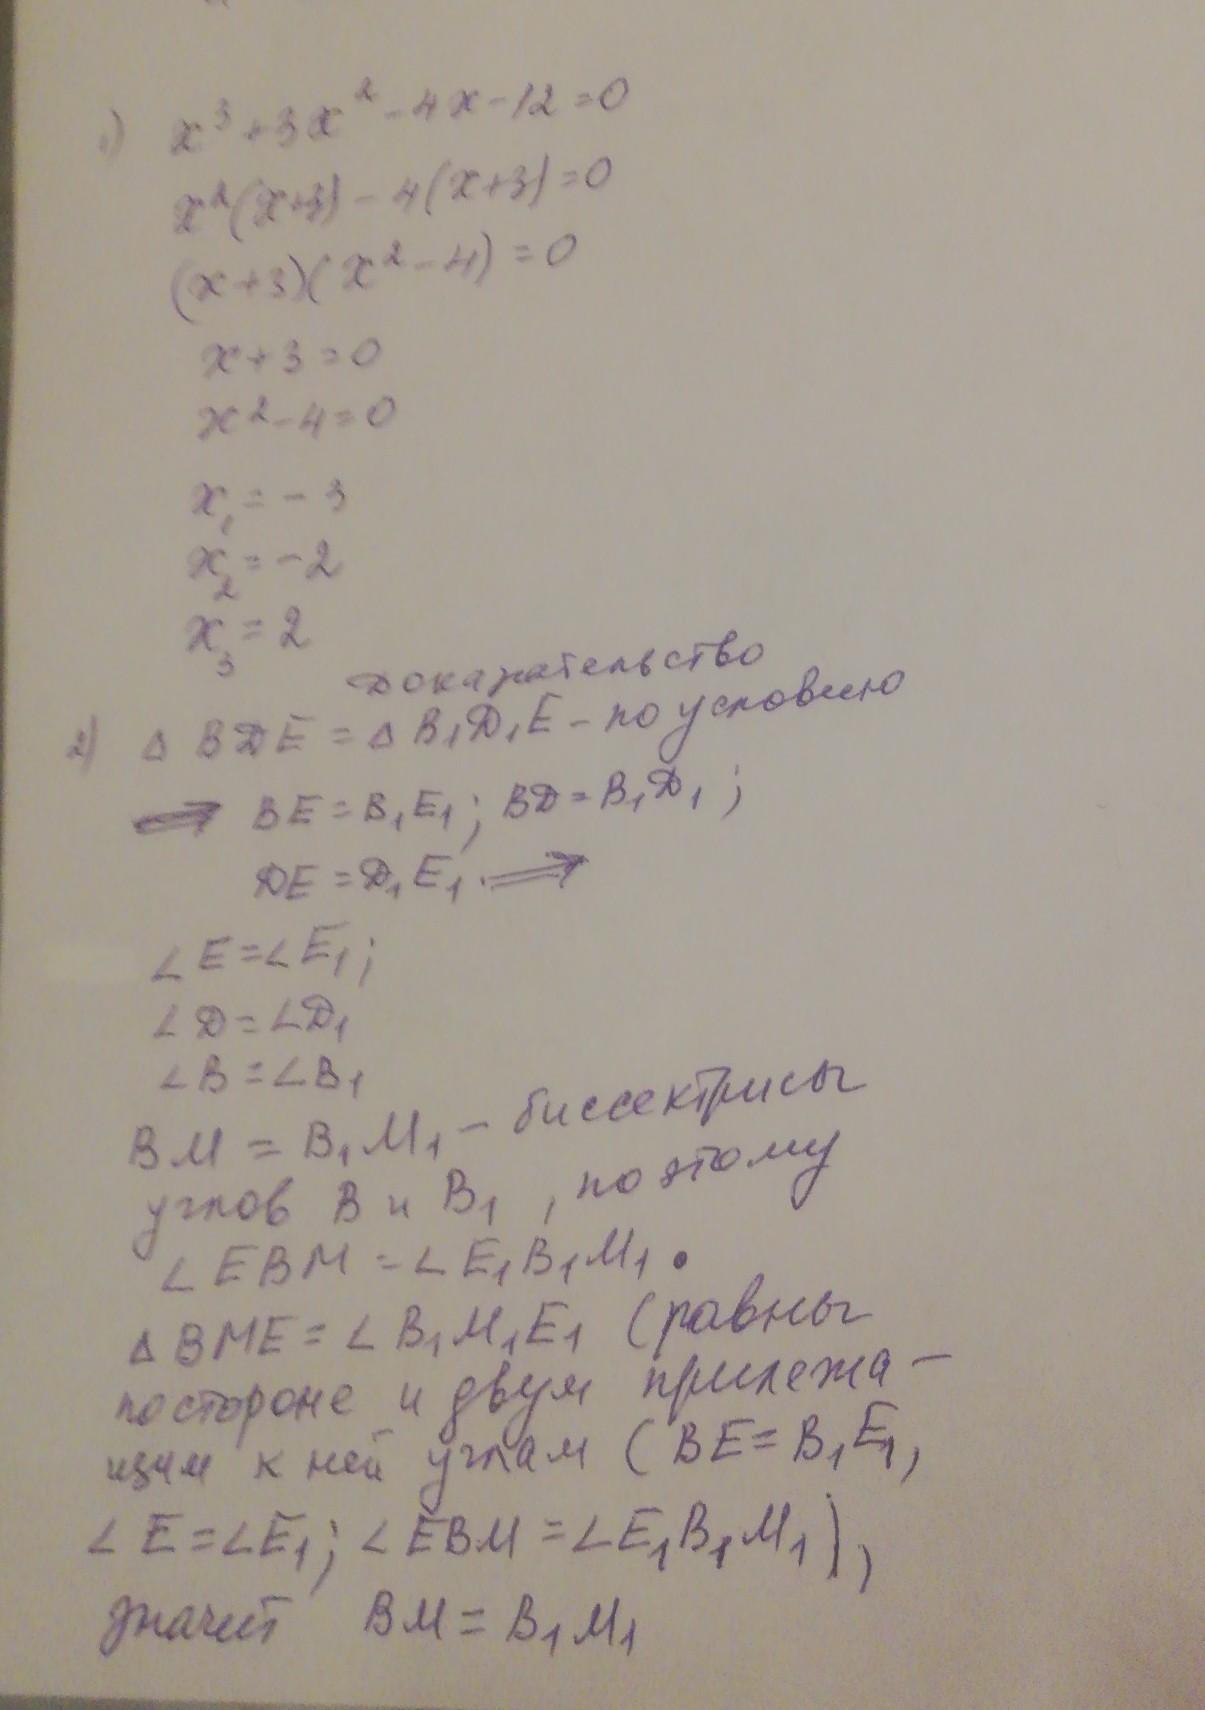 1) x³+3x²-4x-12=0
x²(x+3)-4(x+3)=0
(x+3)(x²-4)=0
x+3=0
x²-4=0
x₁=-3
x₂=-2
x₃=2
Доказательство
2) △ BDE = △ B₁D₁E - по условию
⇒ BE=B₁E₁; BD=B₁D₁;
DE=D₁E₁. ⇒
∠E=∠E₁;
∠D=∠D₁
∠B=∠B₁
BM = B₁M₁ - биссектрисы
углов B и B₁, поэтому
∠EBM=∠E₁B₁M₁.
△BME=∠B₁M₁E₁ (равны
по стороне и двум прилежа-
щим к ней углам (BE=B₁E₁,
∠E=∠E₁; ∠EBM=∠E₁B₁M₁),
значит BM=B₁M₁